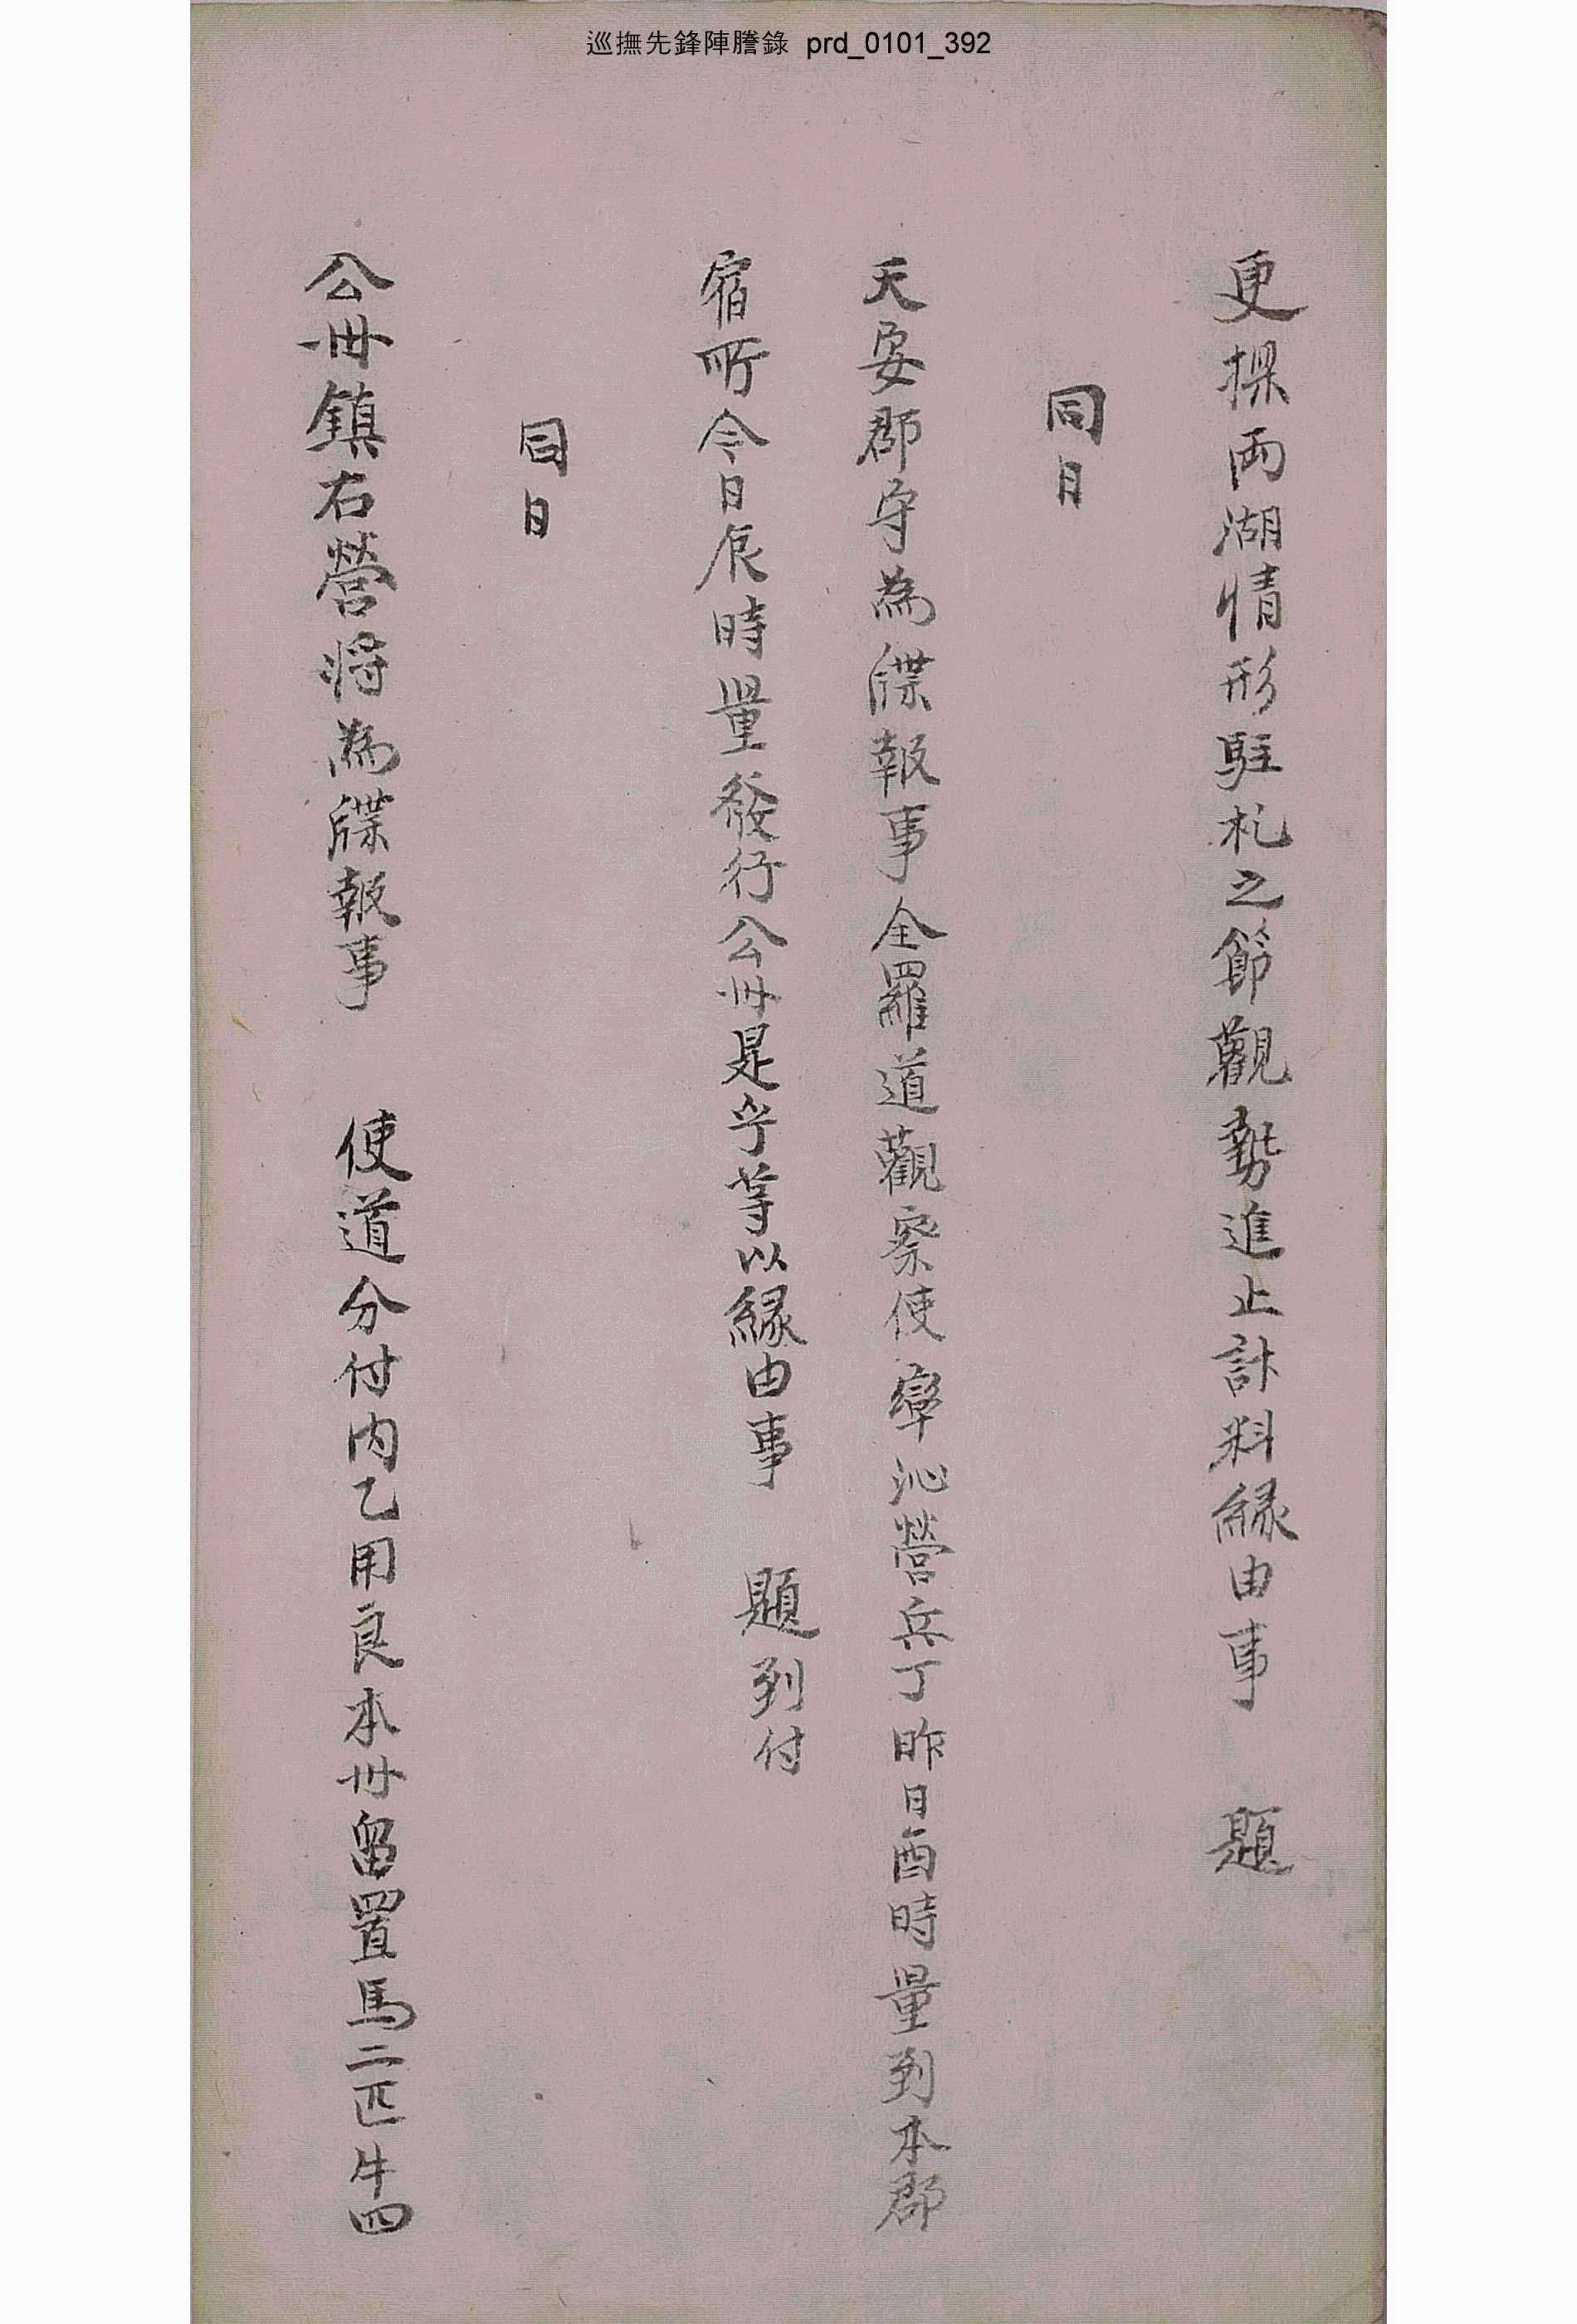 巡撫先鋒陣謄錄 prd_0101_392
更探兩湖情形駐札之節觀勢進止計料緣由事 題
同日
天安郡守為牒報事全羅道觀察使率沁營兵丁昨日酉時量到本郡
宿所今日辰時量發行公州是乎等以緣由事 題到付
同日
公州鎮右營將為牒報事 使道分付內乙用良本州留置馬二匹牛四